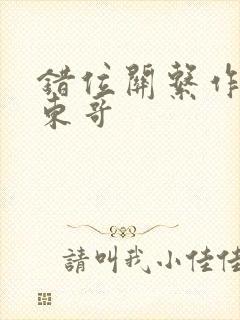 錯位關繫作
東哥
請叫我小佳佳